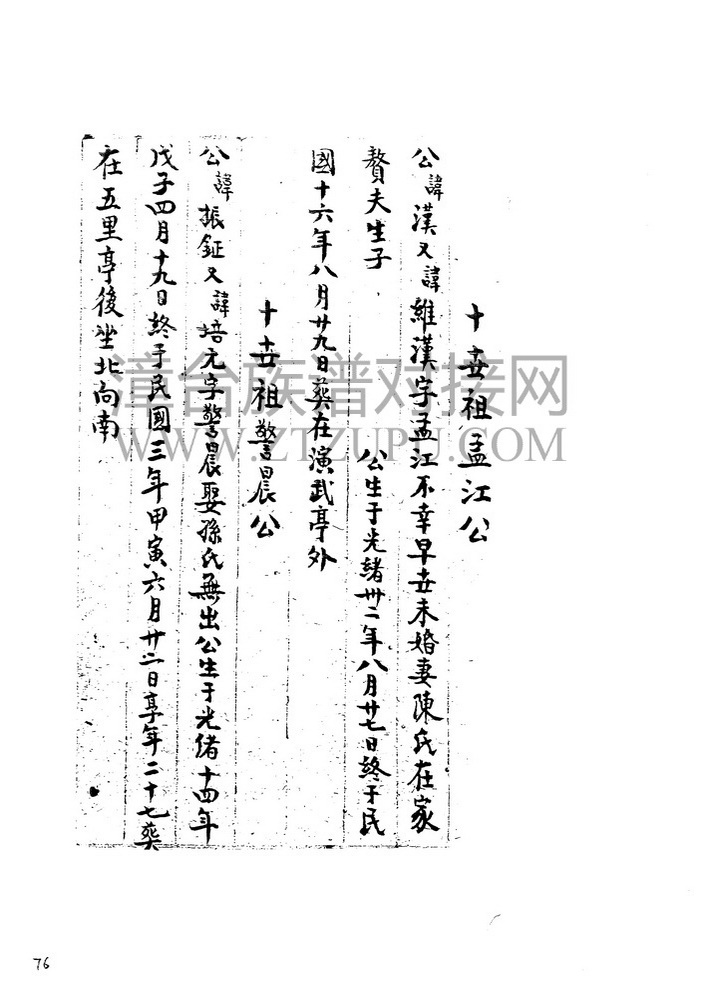 十世祖孟江公
公諱漢又諱維漢字孟江不幸早世未婚妻陳氏在家
贅夫生子 公生于光緒卅二年八月廿七日終于民
國十六年八月廿九日葬在演武亭外
十世祖警晨公
公諱振鉦又諱培元字警晨娶孫氏無出公生于光緒十四年
戊子四月十九日終于民國三年甲寅六月廿二日享年二十七葬
在五里亭後坐北向南
漳台族谱对接网
WWW.ZTZUPU.COM
76